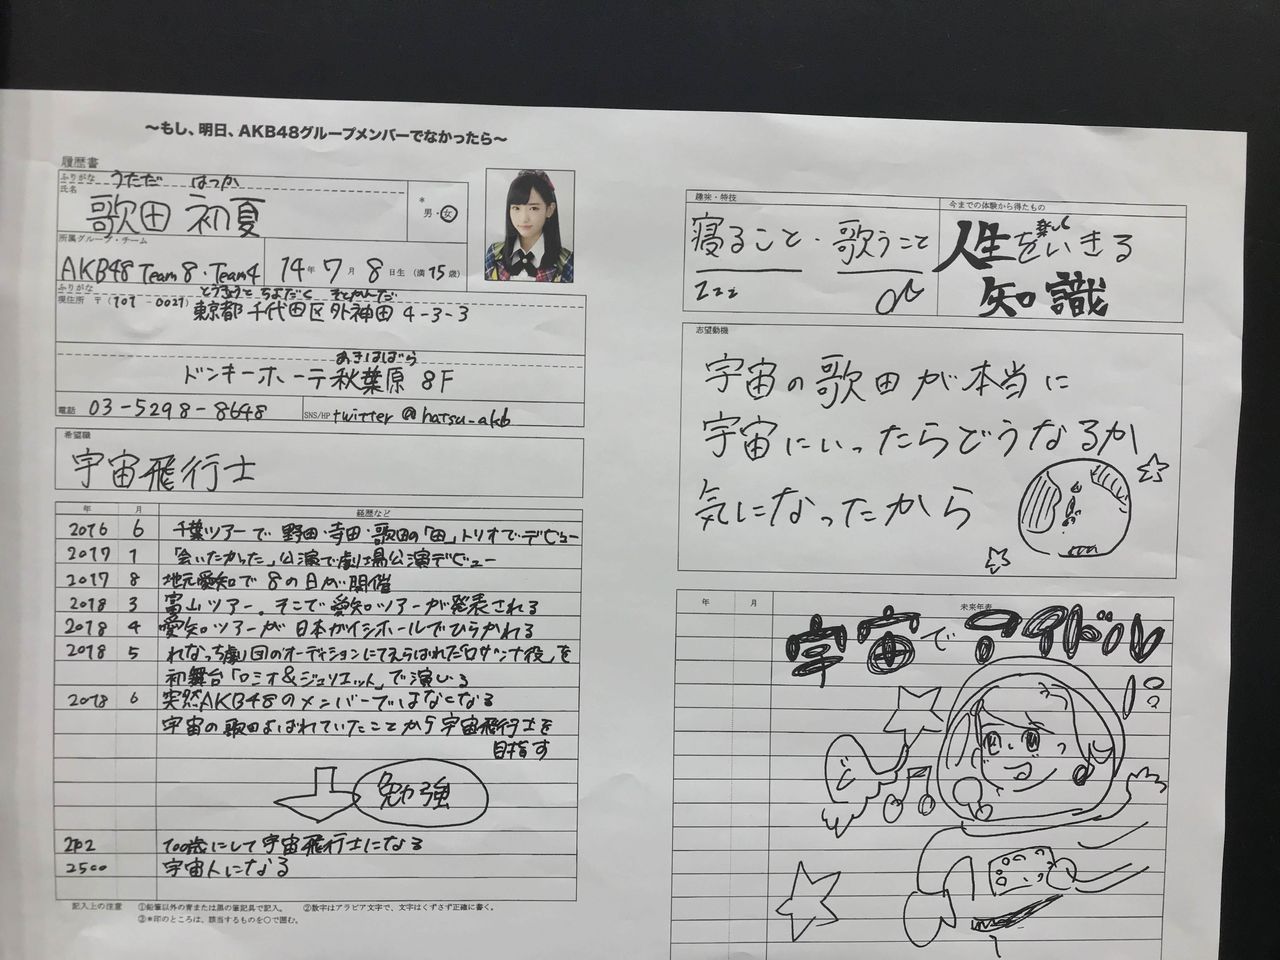 〜もし、明日、AKB48グループメンバーでなかったら〜
履歴書
ふりがな うただ はつか
氏名
歌田 初夏
*
男・女
所属グループ・チーム
AKB48 Team 8・Team4
14年 7月 8日生(満15歳)
ふりがな とうきょうと ちよだく そとかんだ
現住所 〒(101-0021) 東京都千代田区外神田 4-3-3
あきはばら
ドンキーホーテ秋葉原 8F
電話 03-5298-8648
SNS/HP twitter @hatsu_akb
希望職
宇宙飛行士
年 月 経歴など
2016 6 千葉ツアーで 野田・寺田・歌田の「田」トリオでデビュー
2017 1 「会いたかった」公演で劇場公演デビュー
2017 8 地元愛知で 8の日が開催
2018 3 富山ツアー。そこで愛知ツアーが発表される
2018 4 愛知ツアーが日本ガイシホールでひらかれる
2018 5 れなっち劇団のオーディションにてえらばれた「ロザンナ役」を
初舞台「ロミオ&ジュリエット」で演じる
2018 6 突然AKB48のメンバーではなくなる
宇宙の歌田よばれていたことから宇宙飛行士を
目指す
勉強
100歳にして宇宙飛行士になる
2500 宇宙人になる
記入上の注意 ①鉛筆以外の青または黒の筆記具で記入。 ②数字はアラビア文字で、文字はくずさず正確に書く。
③*印のところは、該当するものを〇で囲む。
趣味・特技
寝ること・歌うこと
Zzz
今までの体験から得たもの
人生を楽しくいきる
知識
志望動機
宇宙の歌田が本当に
宇宙にいったらどうなるか
気になったから
年 月 未来年表
宇宙でアイドル